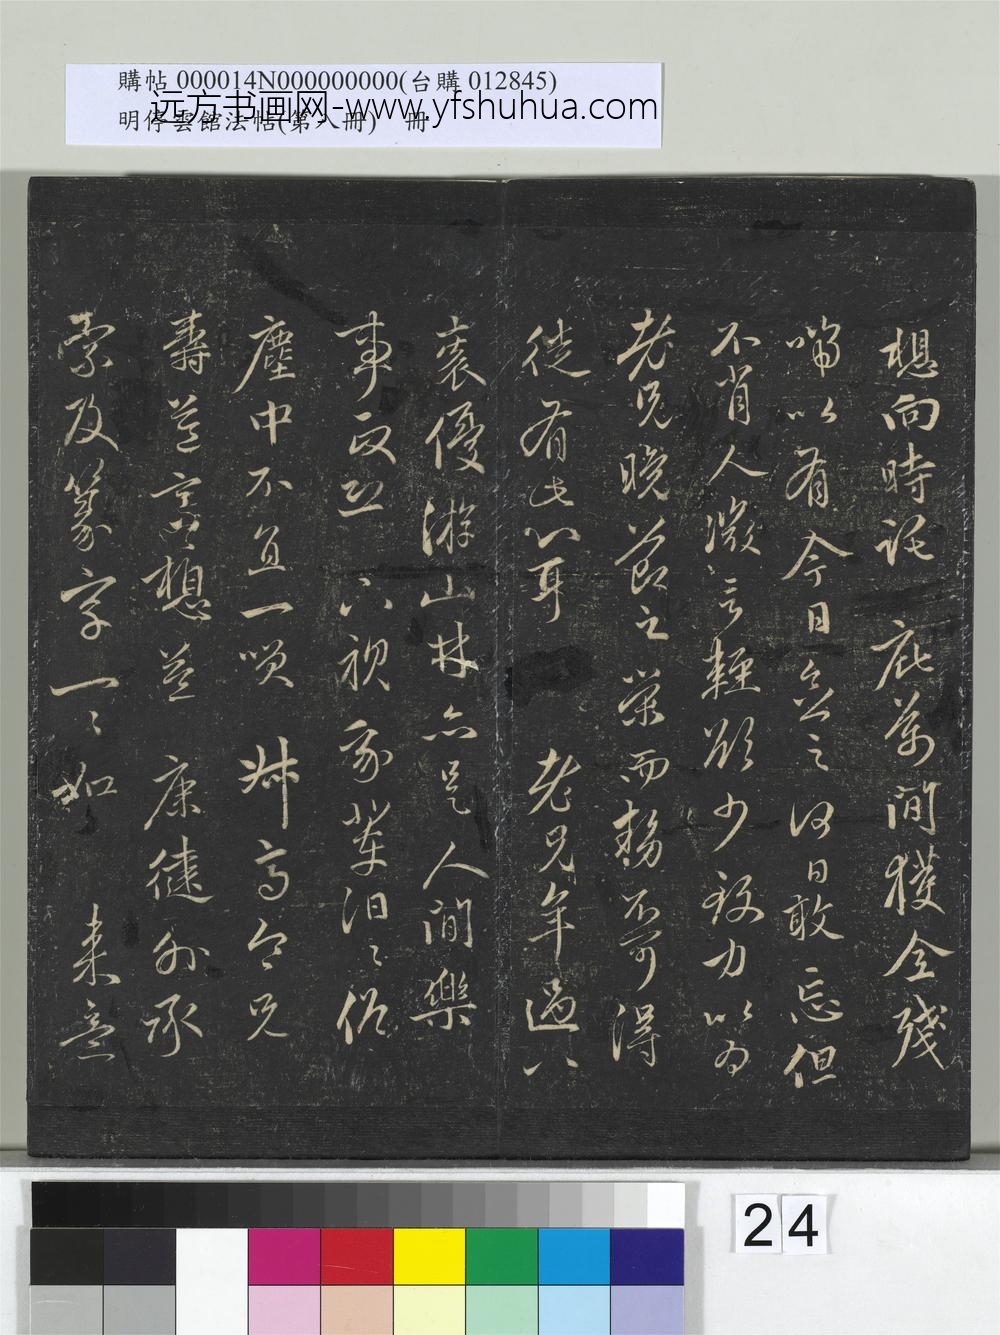 購帖 000014N000000000(台購 012845)
明停雲館法帖(第八冊) 冊
远方书画网-www.yfshuhua.com
想向時託 庇葊間獲全殘
喘以有今日念之何日敢忘但
不肖人微言輕欲少致力以為
老兄晚節之榮而揚不可得
徒有此心耳 老兄年過八
裘優游山林亦是人間樂
事
塵中不直一唄 高令兄
壽 想益康健外承
索及篆字一一如 來意
24